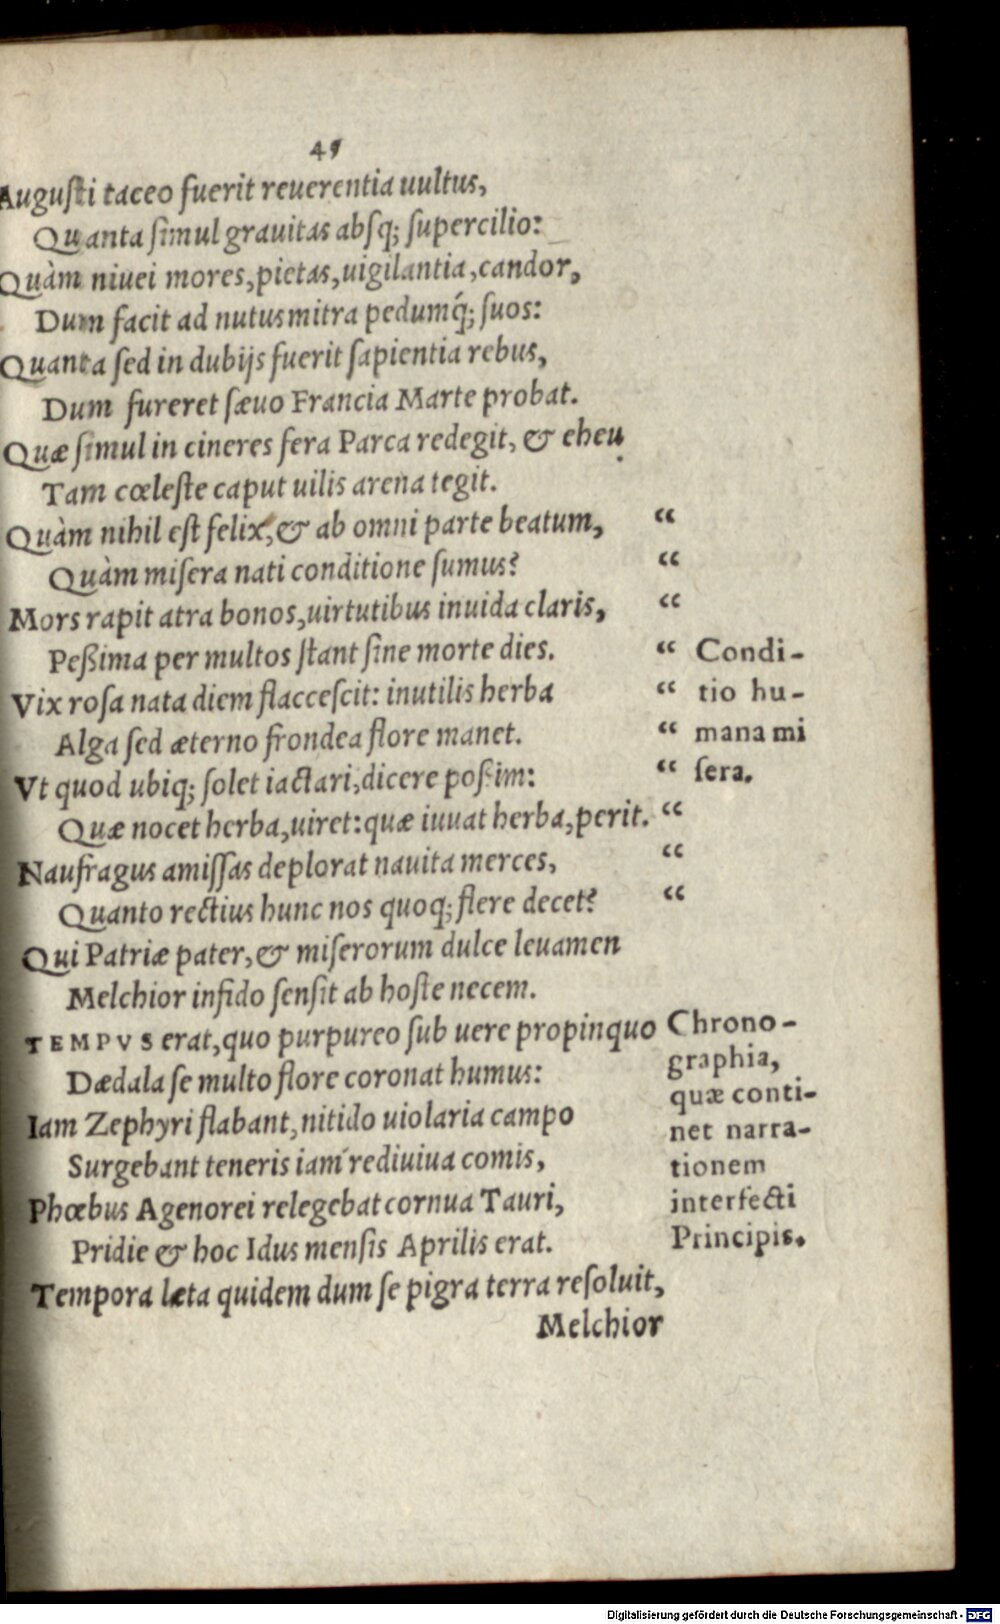 45
Augusti taceo fuerit reuerentia uultus,
Quanta simul grauitas absq; supercilio:
Quàm niuei mores, pietas, uigilantia, candor,
Dum facit ad nutus mitra pedumq́; suos:
Quanta sed in dubijs fuerit sapientia rebus,
Dum fureret sæuo Francia Marte probat.
Quæ simul in cineres fera Parca redegit, & eheu
Tam cœleste caput uilis arena tegit.
Quàm nihil est felix, & ab omni parte beatum, “
Quàm misera nati conditione sumus? “
Mors rapit atra bonos, uirtutibus inuida claris, “
Peßima per multos stant sine morte dies. “ Condi-
Vix rosa nata diem flaccescit: inutilis herba “ tio hu-
Alga sed æterno frondea flore manet. “ mana mi
Vt quod ubiq; solet iactari, dicere poßim: “ sera.
Quæ nocet herba, uiret: quæ iuuat herba, perit. “
Naufragus amissas deplorat nauita merces, “
Quanto rectius hunc nos quoq; flere decet? “
Qui Patriæ pater, & miserorum dulce leuamen
Melchior infido sensit ab hoste necem.
TEMPVS erat, quo purpureo sub uere propinquo
Dædala se multo flore coronat humus:
Iam Zephyri flabant, nitido uiolaria campo
Surgebant teneris iam rediuiua comis,
Phœbus Agenorei relegebat cornua Tauri,
Pridie & hoc Idus mensis Aprilis erat.
Tempora læta quidem dum se pigra terra resoluit,
Chrono-
graphia,
quæ conti-
net narra-
tionem
interfecti
Principis.
Melchior
Digitalisierung gefördert durch die Deutsche Forschungsgemeinschaft - DFG